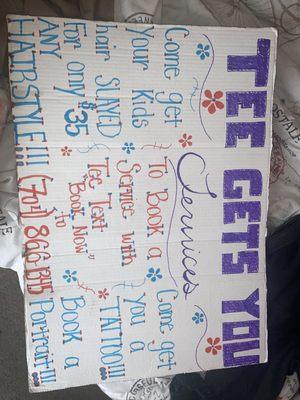 TEE GETS YOU
Services
Come get
Your Kids
hair SLAYED
For only $35
ANY
HAIRSTYLE!!!
To Book a
Service with
Tee Text
"Book Now"
to
Come get
You a
TATTOO!!!
Book a
Portrait!!!